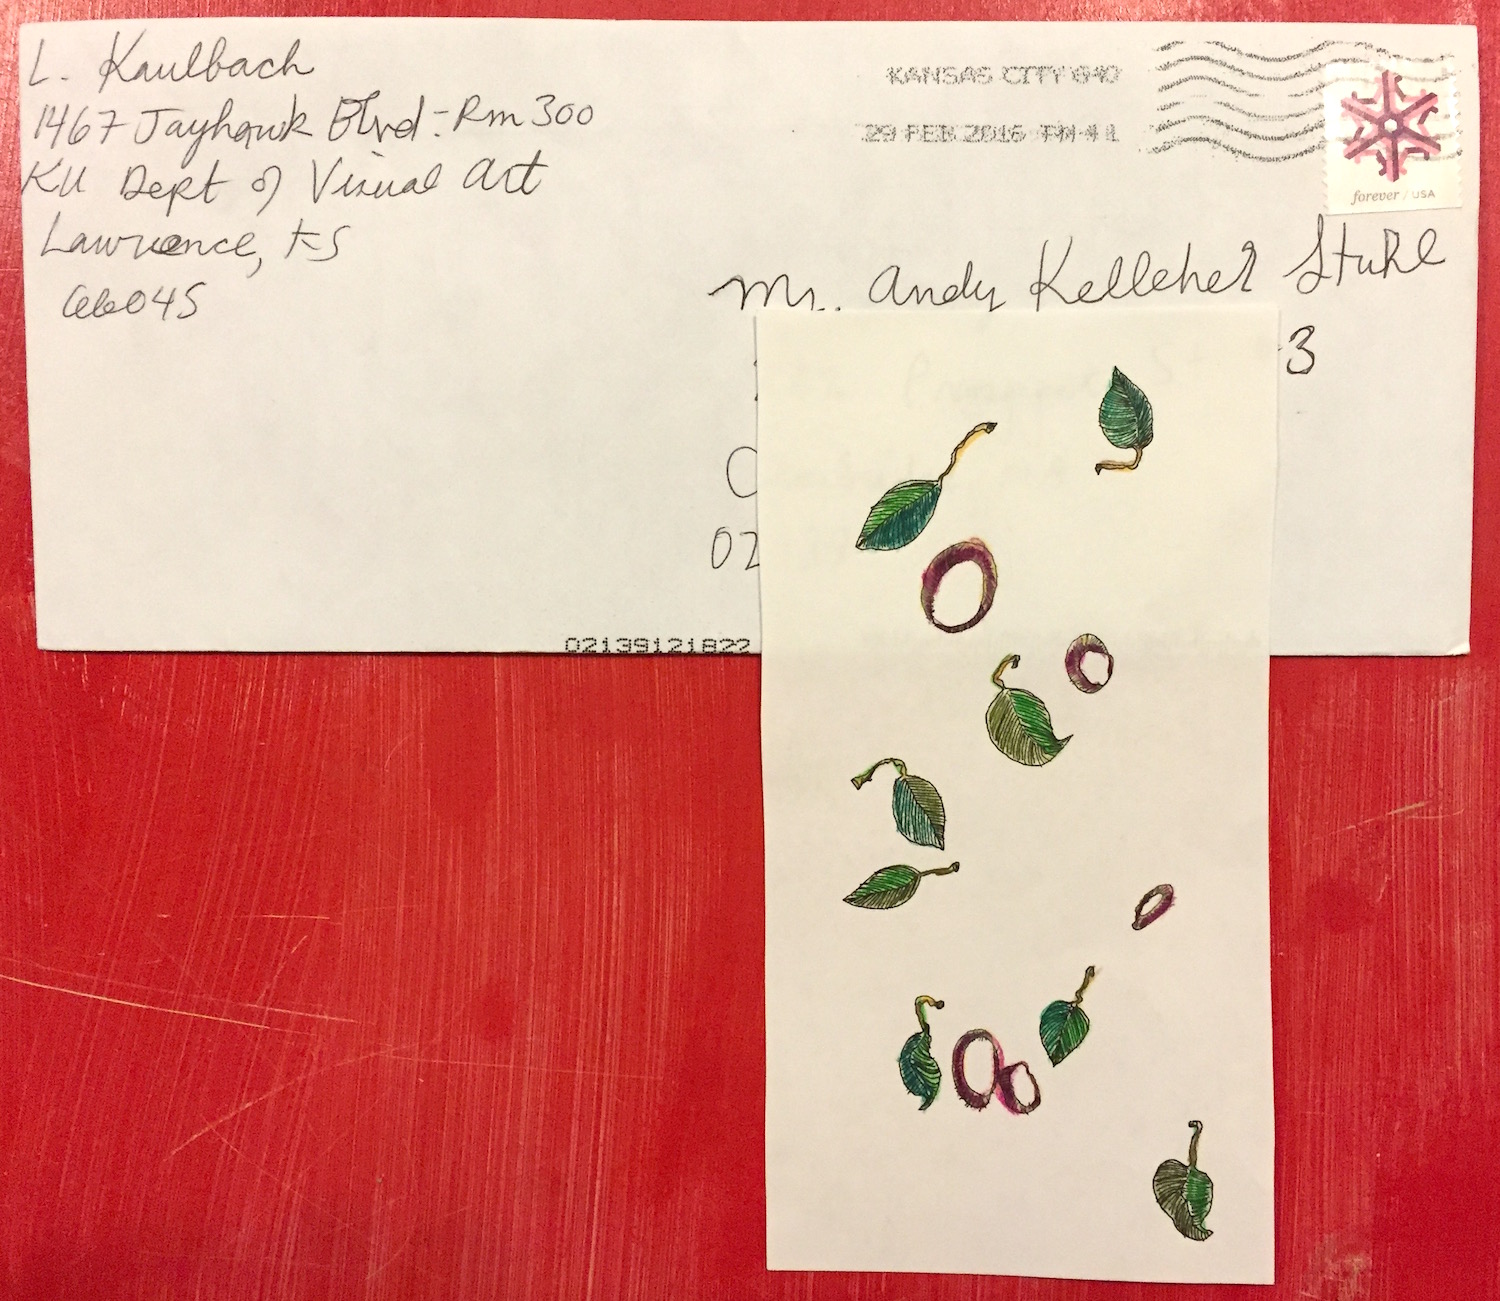 L. Kaulbach
1467 Jayhawk Blvd - Rm 300
KU Dept of Visual Art
Lawrence, KS
66045
KANSAS CITY 640
29 FEB 2016 PM 4 L
forever / USA
Mr. Andy Kelleher Stuhl
3
02
02139121822